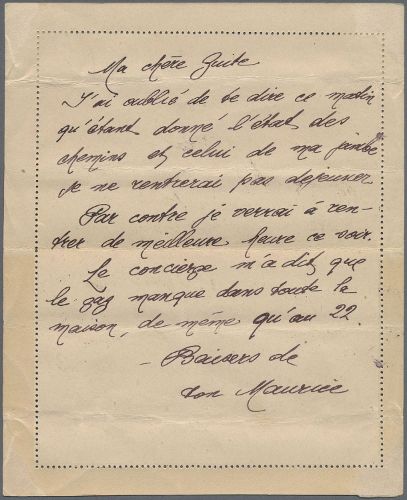 Ma chère Guite
J'ai oublié de te dire ce matin
qu'étant donné l'état des
chemins et celui de ma jambe
je ne rentrerai pas déjeuner.
Par contre je verrai à ren-
trer de meilleure heure ce soir.
Le concierge m'a dit que
le gaz manque dans toute la
maison, de même qu'au 22.
- Baisers de
ton Maurice